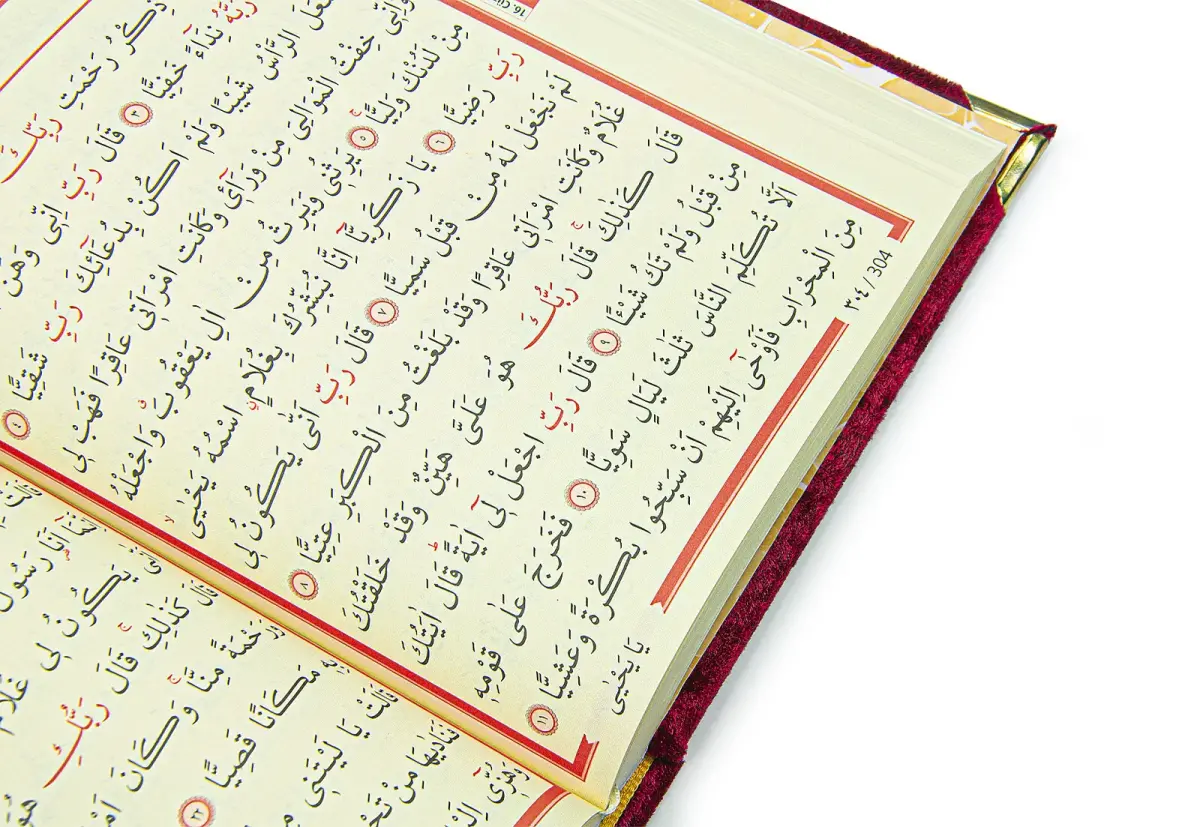 ذِكْرُ رَحْمَتِ رَبِّكَ
رَبَّهُ نِدَآءً خَفِيًّا ٣ قَالَ رَبِّ اِنّٖى وَهَنَ
الرَّأْسُ شَيْبًا وَلَمْ اَكُنْ بِدُعَآئِكَ رَبِّ شَقِيًّا ٤
وَاِنّٖى خِفْتُ الْمَوَالِىَ مِنْ وَرَآئٖ وَكَانَتِ امْرَاَتٖى عَاقِرًا فَهَبْ لٖى
مِنْ لَدُنْكَ وَلِيًّا ٥ يَرِثُنٖى وَيَرِثُ مِنْ اٰلِ يَعْقُوبَ وَاجْعَلْهُ
رَبِّ رَضِيًّا ٦ يَا زَكَرِيَّآ اِنَّا نُبَشِّرُكَ بِغُلَامٍ اسْمُهُ يَحْيٰى
لَمْ نَجْعَلْ لَهُ مِنْ قَبْلُ سَمِيًّا ٧ قَالَ رَبِّ اَنّٰى يَكُونُ لٖى
غُلَامٌ وَكَانَتِ امْرَاَتٖى عَاقِرًا وَقَدْ بَلَغْتُ مِنَ الْكِبَرِ عِتِيًّا ٨
قَالَ كَذٰلِكَ قَالَ رَبُّكَ هُوَ عَلَىَّ هَيِّنٌ وَقَدْ خَلَقْتُكَ
مِنْ قَبْلُ وَلَمْ تَكُ شَيْـًٔا ٩ قَالَ رَبِّ اجْعَلْ لٖٓى اٰيَةً قَالَ اٰيَتُكَ
اَلَّا تُكَلِّمَ النَّاسَ ثَلٰثَ لَيَالٍ سَوِيًّا ١٠ فَخَرَجَ عَلٰى قَوْمِهٖ
مِنَ الْمِحْرَابِ فَاَوْحٰٓى اِلَيْهِمْ اَنْ سَبِّحُوا بُكْرَةً وَعَشِيًّا ١١
٣٠٤ / 304
يَا يَحْيٰى
اَنَا رَسُولُ
يَكُونُ لٖى غُلَامٌ
كَذٰلِكِ قَالَ رَبُّكِ هُوَ
مِنَّا وَكَانَ
مَكَانًا قَصِيًّا ٢٢
قَالَتْ يَا لَيْتَنٖى
فَنَادٰيهَا مِنْ
وَهُزّٖٓى